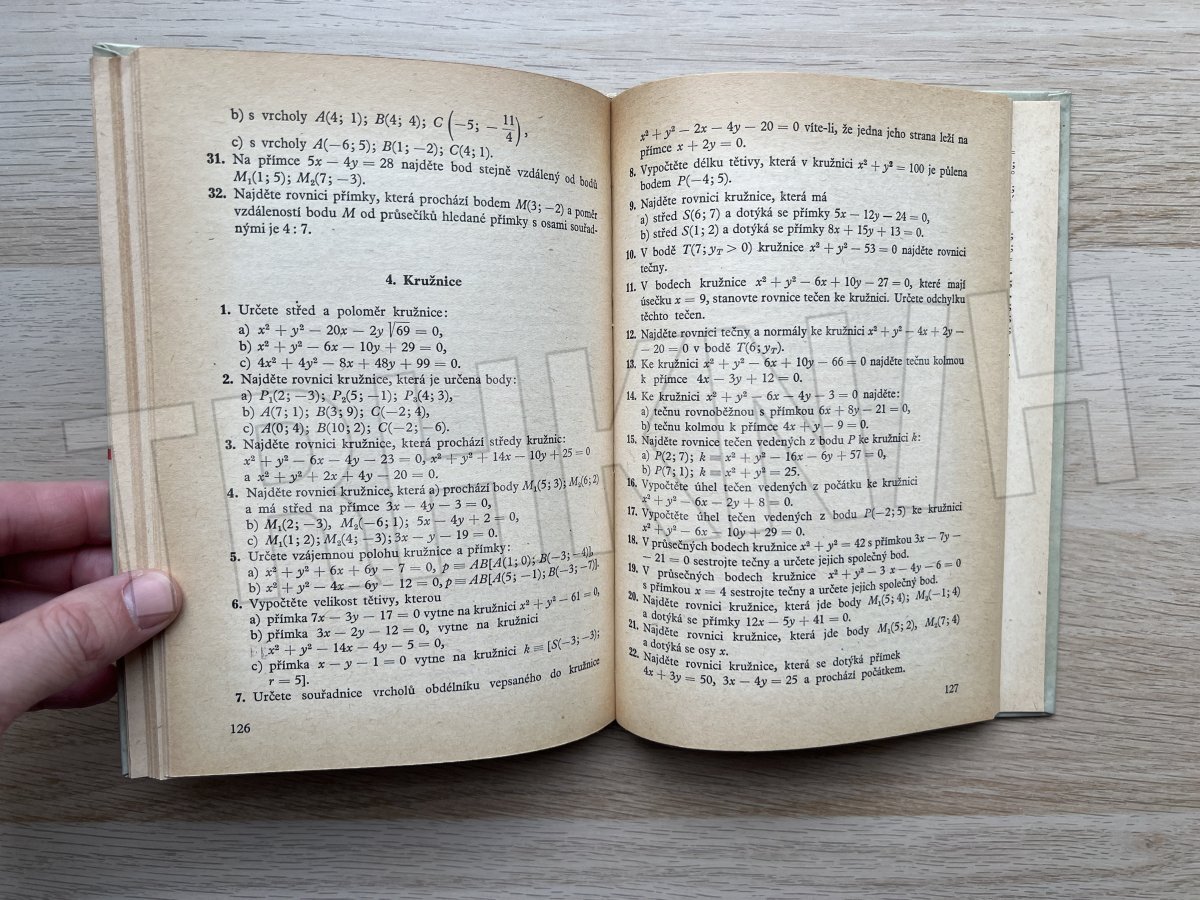 b) s vrcholy A(4; 1); B(4; 4); C(−5; −11/4),
c) s vrcholy A(−6; 5); B(1; −2); C(4; 1).
31. Na přímce 5x − 4y = 28 najděte bod stejně vzdálený od bodů
M₁(1; 5); M₂(7; −3).
32. Najděte rovnici přímky, která prochází bodem M(3; −2) a poměr
vzdáleností bodu M od průsečíků hledané přímky s osami souřad-
nými je 4 : 7.
4. Kružnice
1. Určete střed a poloměr kružnice:
a) x² + y² − 20x − 2y √69 = 0,
b) x² + y² − 6x − 10y + 29 = 0,
c) 4x² + 4y² − 8x + 48y + 99 = 0.
2. Najděte rovnici kružnice, která je určena body:
a) P₁(2; −3); P₂(5; −1); P₃(4; 3),
b) A(7; 1); B(3; 9); C(−2; 4),
c) A(0; 4); B(10; 2); C(−2; 6).
3. Najděte rovnici kružnice, která prochází středy kružnic:
x² + y² − 6x − 4y − 23 = 0, x² + y² + 14x − 10y + 25 = 0
a x² + y² + 2x + 4y − 20 = 0.
4. Najděte rovnici kružnice, která a) prochází body M₁(5; 3); M₂(6; 2)
a má střed na přímce 3x − 4y − 3 = 0,
b) M₁(2; −3), M₂(−6; 1); 5x − 4y + 2 = 0,
c) M₁(1; 2); M₂(4; −3); 3x − y − 19 = 0.
5. Určete vzájemnou polohu kružnice a přímky:
a) x² + y² + 6x + 6y − 7 = 0, p ≡ AB[A(1; 0); B(−3; −4)],
b) x² + y² − 4x − 6y − 12 = 0, p ≡ AB[A(5; −1); B(−3; −7)].
6. Vypočtěte velikost tětivy, kterou
a) přímka 7x − 3y − 17 = 0 vytne na kružnici x² + y² − 61 = 0,
b) přímka 3x − 2y − 12 = 0, vytne na kružnici
x² + y² − 14x − 4y − 5 = 0,
c) přímka x − y − 1 = 0 vytne na kružnici k ≡ [S(−3; −3);
r = 5].
7. Určete souřadnice vrcholů obdélníku vepsaného do kružnice
126
x² + y² − 2x − 4y − 20 = 0 víte-li, že jedna jeho strana leží na
přímce x + 2y = 0.
8. Vypočtěte délku tětivy, která v kružnici x² + y² = 100 je půlena
bodem P(−4; 5).
9. Najděte rovnici kružnice, která má
a) střed S(6; 7) a dotýká se přímky 5x − 12y − 24 = 0,
b) střed S(1; 2) a dotýká se přímky 8x + 15y + 13 = 0.
10. V bodě T(7; yT > 0) kružnice x² + y² − 53 = 0 najděte rovnici
tečny.
11. V bodech kružnice x² + y² − 6x + 10y − 27 = 0, které mají
úsečku x = 9, stanovte rovnice tečen ke kružnici. Určete odchylku
těchto tečen.
12. Najděte rovnici tečny a normály ke kružnici x² + y² − 4x + 2y −
− 20 = 0 v bodě T(6; yT).
13. Ke kružnici x² + y² − 6x + 10y − 66 = 0 najděte tečnu kolmou
k přímce 4x − 3y + 12 = 0.
14. Ke kružnici x² + y² − 6x − 4y − 3 = 0 najděte:
a) tečnu rovnoběžnou s přímkou 6x + 8y − 21 = 0,
b) tečnu kolmou k přímce 4x + y − 9 = 0.
15. Najděte rovnice tečen vedených z bodu P ke kružnici k:
a) P(2; 7); k ≡ x² + y² − 16x − 6y + 57 = 0,
b) P(7; 1); k ≡ x² + y² = 25.
16. Vypočtěte úhel tečen vedených z počátku ke kružnici
x² + y² − 6x − 2y + 8 = 0.
17. Vypočtěte úhel tečen vedených z bodu P(−2; 5) ke kružnici
x² + y² − 6x − 10y + 29 = 0.
18. V průsečných bodech kružnice x² + y² = 42 s přímkou 3x − 7y −
− 21 = 0 sestrojte tečny a určete jejich společný bod.
19. V průsečných bodech kružnice x² + y² − 3 x − 4y − 6 = 0
s přímkou x = 4 sestrojte tečny a určete jejich společný bod.
20. Najděte rovnici kružnice, která jde body M₁(5; 4); M₂(−1; 4)
a dotýká se přímky 12x − 5y + 41 = 0.
21. Najděte rovnici kružnice, která jde body M₁(5; 2), M₂(7; 4)
a dotýká se osy x.
22. Najděte rovnici kružnice, která se dotýká přímek
4x + 3y = 50, 3x − 4y = 25 a prochází počátkem.
127